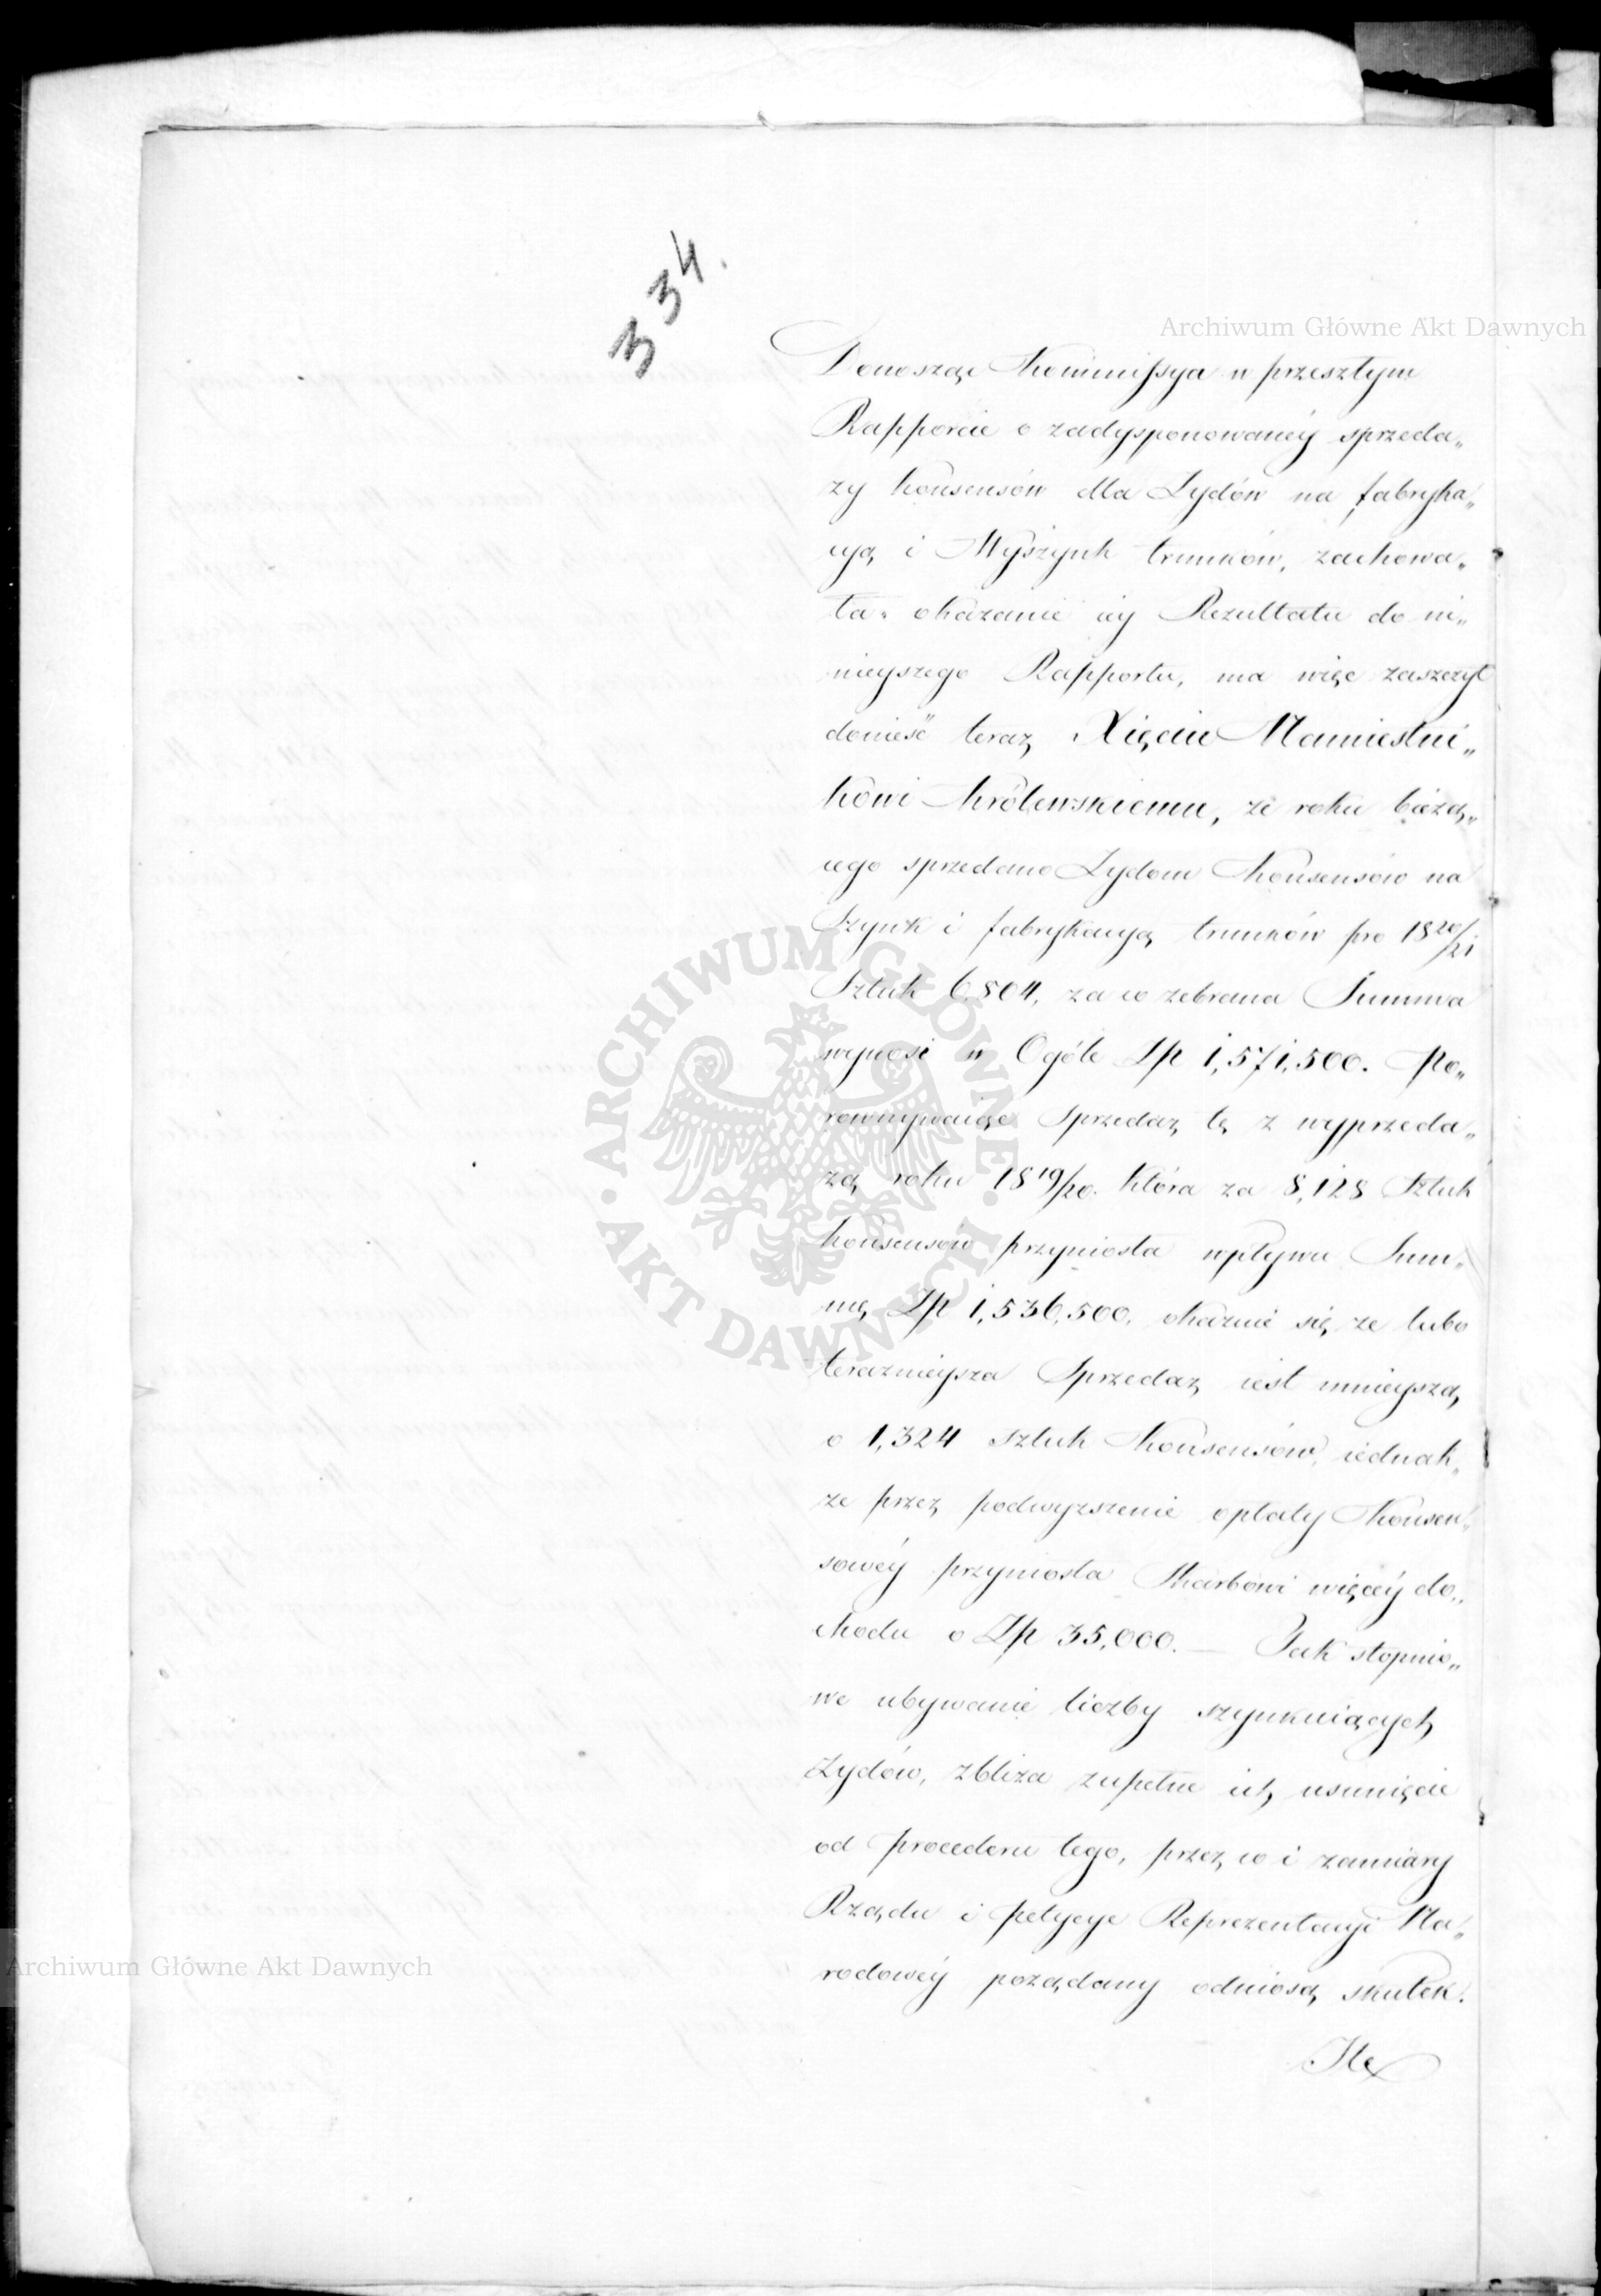 334.
Archiwum Główne Akt Dawnych
Donosząc Kommissya w przeszłym
Rapporcie o zadysponowanéy sprzeda„
ży konsensów dla Żydów na fabryka„
cyą i Wyszynk trunków, zachowa„
ła okazanie iéy Rezultatu do ni„
nieyszego Rapportu, ma więc zaszczyt
donieść teraz Xięciu Namiestni„
kowi Królewskiemu, że roku bieżą„
cego sprzedano Żydom Konsensów na
Szynk i fabrykacyą trunków pro 1820/21
Sztuk 6,804, za co zebrana Summa
wynosi w Ogóle Złp 1,571,500. Po„
rownywaiąc Sprzedaż tę z wyprzeda„
żą roku 1819/20. która za 8,128 Sztuk
konsensów przyniosła wpływu Sum„
mę Złp 1,536,500, okazuie się że lubo
teraznieysza Sprzedaż iest mnieyszą
o 1,324 sztuk Konsensów, iednak„
że przez podwyższenie opłaty Konsen„
sowéy przyniosła Skarbowi więcéy do„
chodu o Złp 35,000. — Tak stopnio„
we ubywanie liczby szynkuiących
Żydów, zbliża zupełne ich usunięcie
od procederu tego, przez co i zamiary
Rządu i petycye Reprezentacyi Na„
rodowéy pożądany odniosą skutek.
Ile
Archiwum Główne Akt Dawnych
ARCHIWUM GŁÓWNE • AKT DAWNYCH •